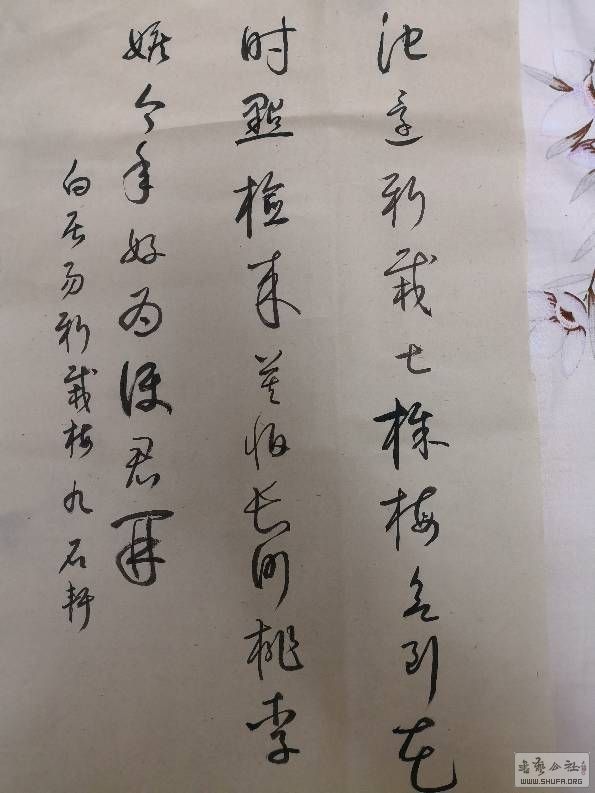 池邊新栽七株梅欲到花
时點檢来莫怕长洲桃李
嫉今年好为使君開
白居易新栽梅九石軒
書藝公社
WWW.SHUFA.ORG